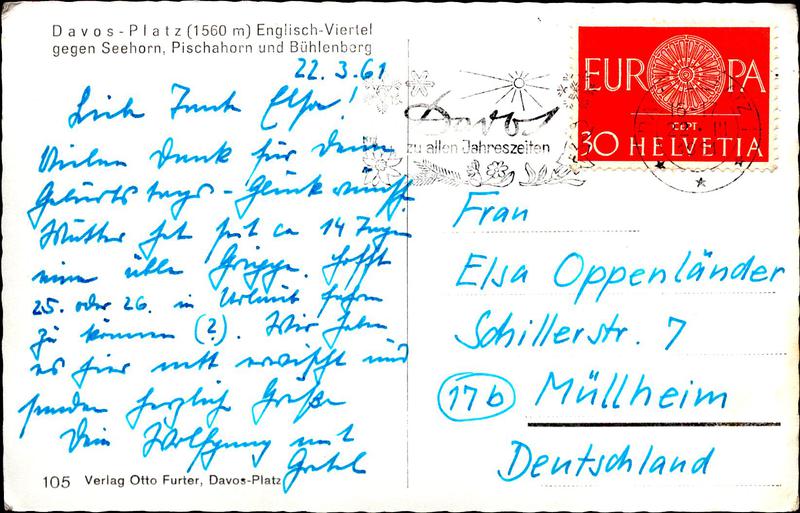 Davos-Platz (1560 m) Englisch-Viertel
gegen Seehorn, Pischahorn und Bühlenberg
22.3.61
Liebe Tante Elsa!
Vielen Dank für deine
Geburtstags-Glückwünsche
Mutter hat seit ca 14 Tagen
eine üble Grippe. Hofft
25. oder 26. in Urlaub fahren
zu können (?). Wir haben
es hier nett erwischt und
senden herzliche Grüße
Dein Wolfgang mit
Gretel
105 Verlag Otto Furter, Davos-Platz
Davos
zu allen Jahreszeiten
EUROPA
CEPT.
30 HELVETIA
Frau
Elsa Oppenländer
Schillerstr. 7
(17b) Müllheim
Deutschland